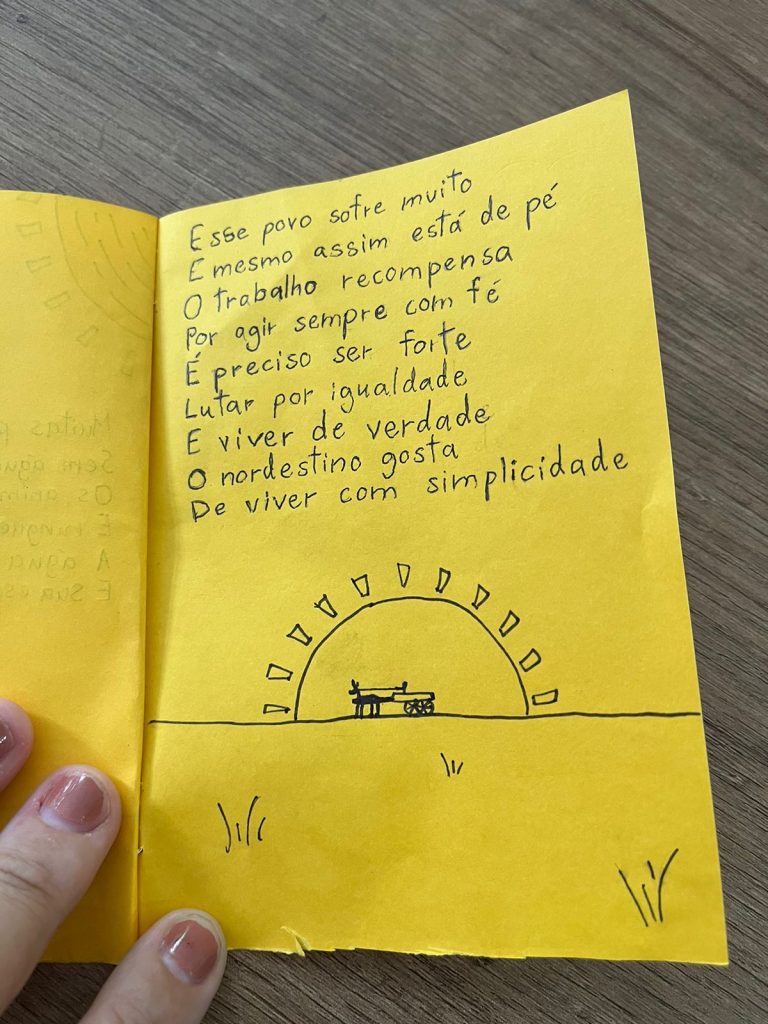 Esse povo sofre muito
E mesmo assim está de pé
O trabalho recompensa
Por agir sempre com fé
É preciso ser forte
Lutar por igualdade
E viver de verdade
O nordestino gosta
De viver com simplicidade